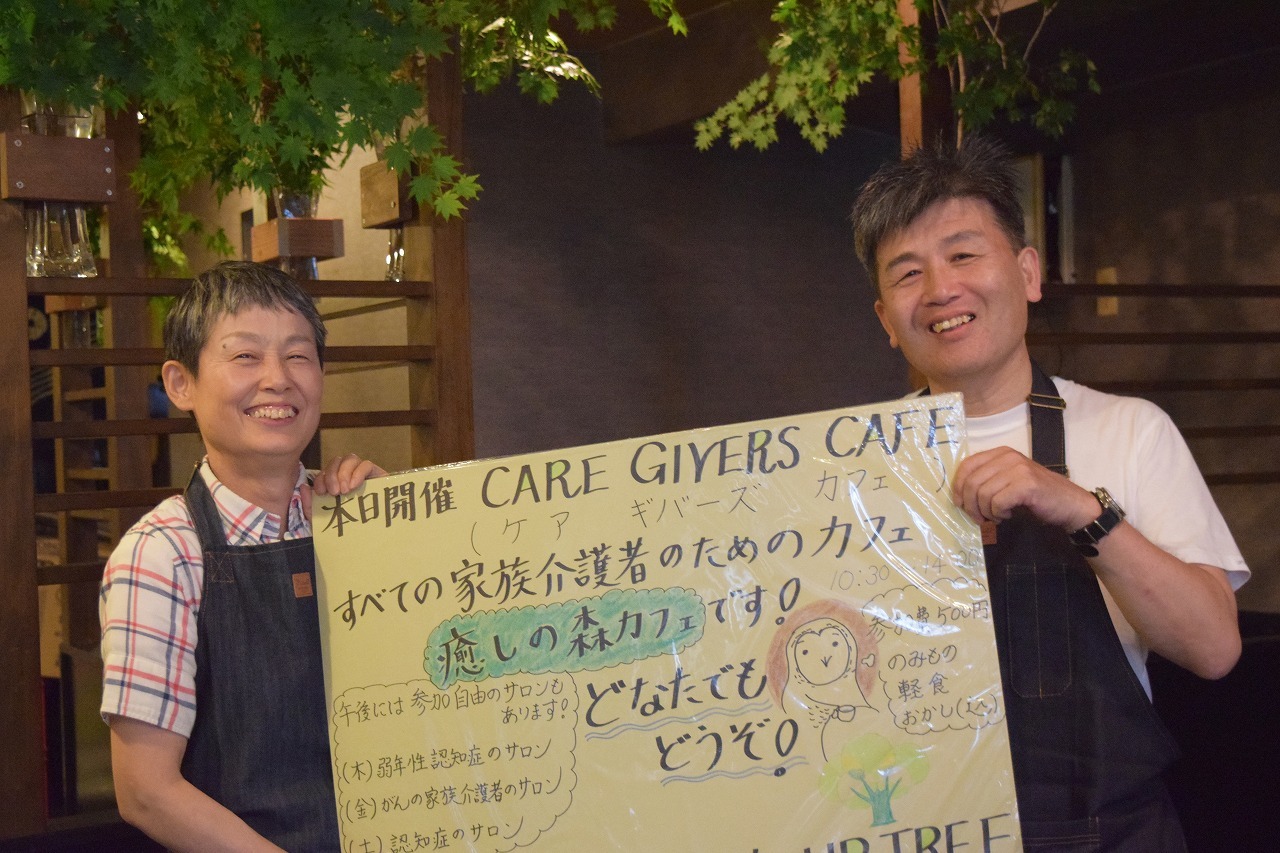 本日開催 CARE GIVERS CAFE
(ケア ギバーズ カフェ)
すべての家族介護者のためのカフェ
10:30
癒しの森カフェです!
参加費500円
のみもの
軽食
おかし
どなたでも
どうぞ!
午後には参加自由のサロンも
あります!
(木)弱年性認知症のサロン
(金)がんの家族介護者のサロン
(土)認知症のサロン
TREE